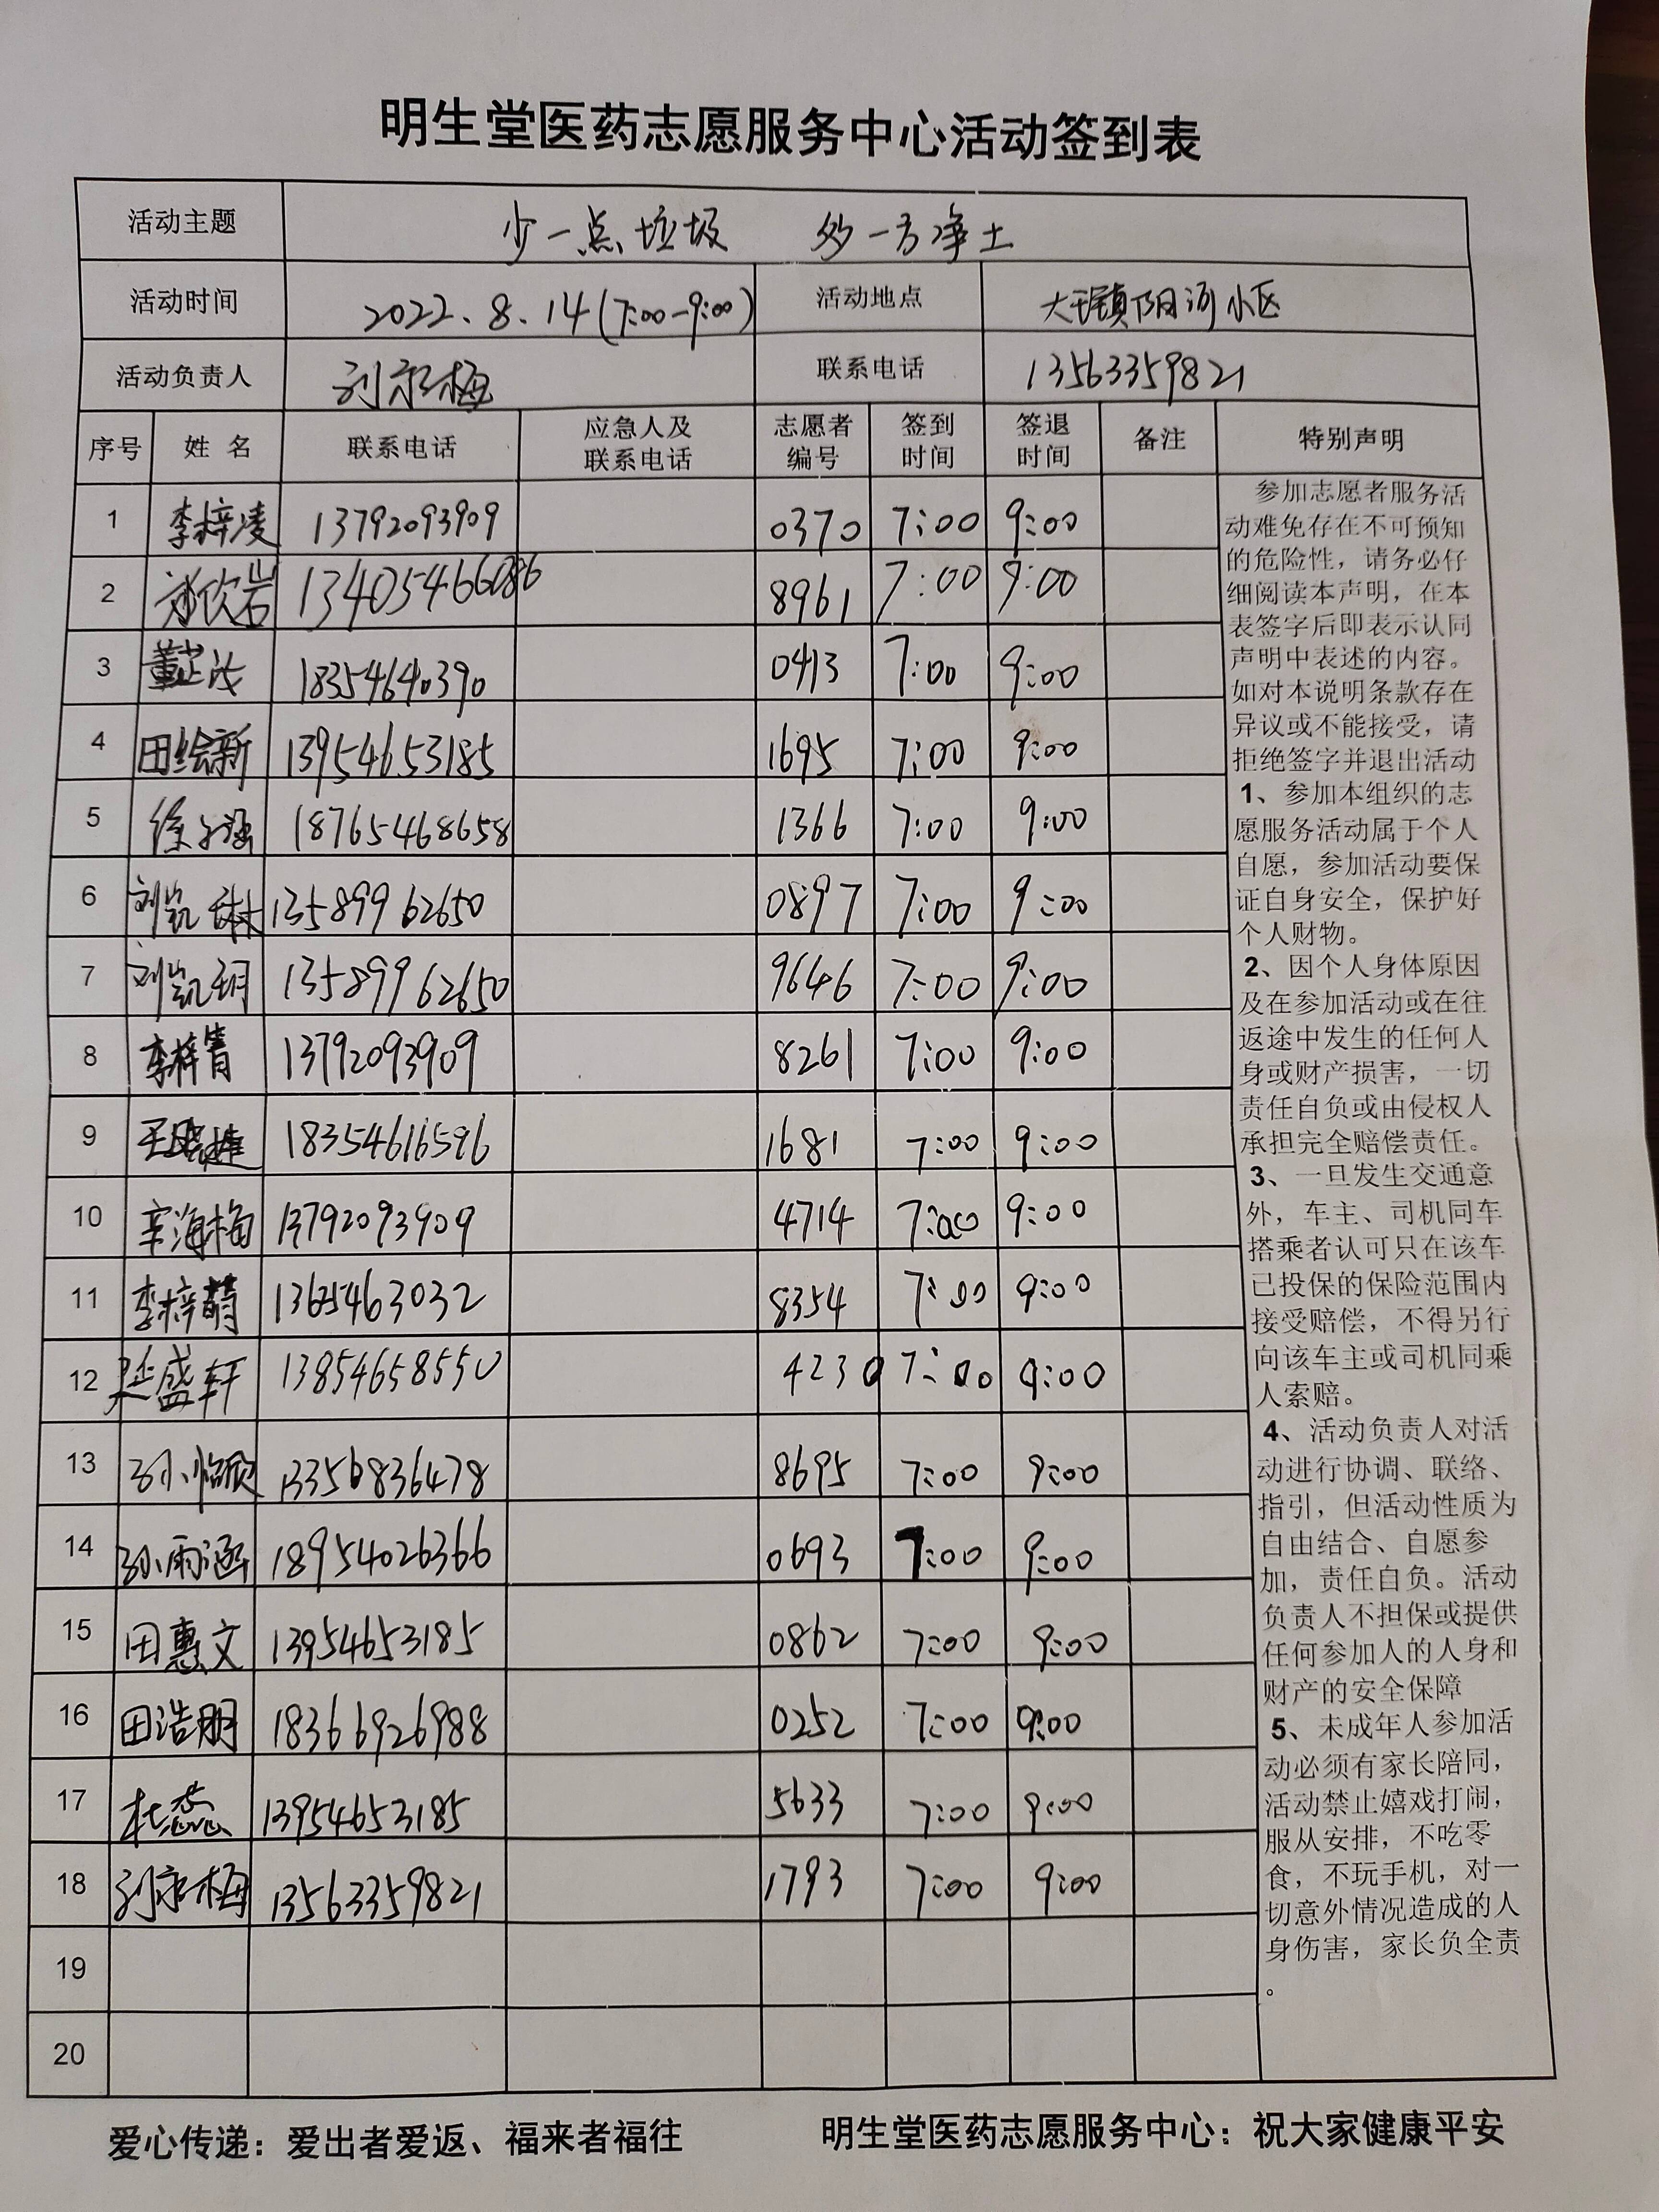 明生堂医药志愿服务中心活动签到表
活动主题 少一点垃圾 多一方净土
活动时间 2022.8.14(7:00-9:00) 活动地点 大王镇阳河小区
活动负责人 刘永梅 联系电话 13563359821
序号 姓名 联系电话 应急人及联系电话 志愿者编号 签到时间 签退时间 备注 特别声明
1 李梓凌 13792093909 0370 7:00 9:00
2 欣岩 134054660 8961 7:00 9:00
3 董芷 18354640390 0413 7:00 9:00
4 田绘新 13954653185 1695 7:00 9:00
5 徐子涵 18765468658 1366 7:00 9:00
6 刘凯琳 13589962650 0897 7:00 9:00
7 刘凯玥 13589962650 9646 7:00 9:00
8 李梓菁 13792093909 8261 7:00 9:00
9 王 18354616596 1681 7:00 9:00
10 辛海梅 13792093909 4714 7:00 9:00
11 李梓萌 13655463032 8354 7:00 9:00
12 延盛轩 13854658550 4230 7:00 9:00
13 孙临欣 13356836478 8695 7:00 9:00
14 孙雨涵 18954026366 0693 7:00 9:00
15 田惠文 13954653185 0862 7:00 9:00
16 田浩朋 18366926988 0252 7:00 9:00
17 杜蕊 13954653185 5633 7:00 9:00
18 刘永梅 13563359821 1793 7:00 9:00
19
20
参加志愿者服务活
动难免存在不可预知
的危险性，请务必仔
细阅读本声明，在本
表签字后即表示认同
声明中表述的内容。
如对本说明条款存在
异议或不能接受，请
拒绝签字并退出活动
1、参加本组织的志
愿服务活动属于个人
自愿，参加活动要保
证自身安全，保护好
个人财物。
2、因个人身体原因
及在参加活动或在往
返途中发生的任何人
身或财产损害，一切
责任自负或由侵权人
承担完全赔偿责任。
3、一旦发生交通意
外，车主、司机同车
搭乘者认可只在该车
已投保的保险范围内
接受赔偿，不得另行
向该车主或司机同乘
人索赔。
4、活动负责人对活
动进行协调、联络、
指引，但活动性质为
自由结合、自愿参
加，责任自负。活动
负责人不担保或提供
任何参加人的人身和
财产的安全保障
5、未成年人参加活
动必须有家长陪同，
活动禁止嬉戏打闹，
服从安排，不吃零
食，不玩手机，对一
切意外情况造成的人
身伤害，家长负全责
。
爱心传递：爱出者爱返、福来者福往 明生堂医药志愿服务中心：祝大家健康平安